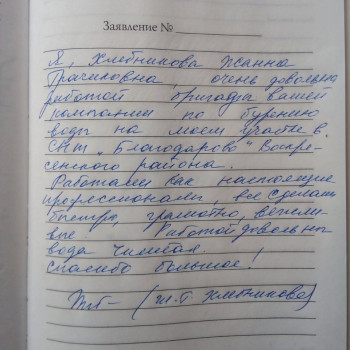 Заявление №
Я, Хлебникова Жанна
Трачиковна, очень довольна
работой бригады вашей
компании по бурению
воды на моем участке в
СНТ "Благодарово" Воскре-
сенского района.
Работали как настоящие
профессионалы, все сделали
быстро, грамотно, вежли-
вые Работой довольна
вода чистая.
спасибо большое!
(Ж.Т. Хлебникова)